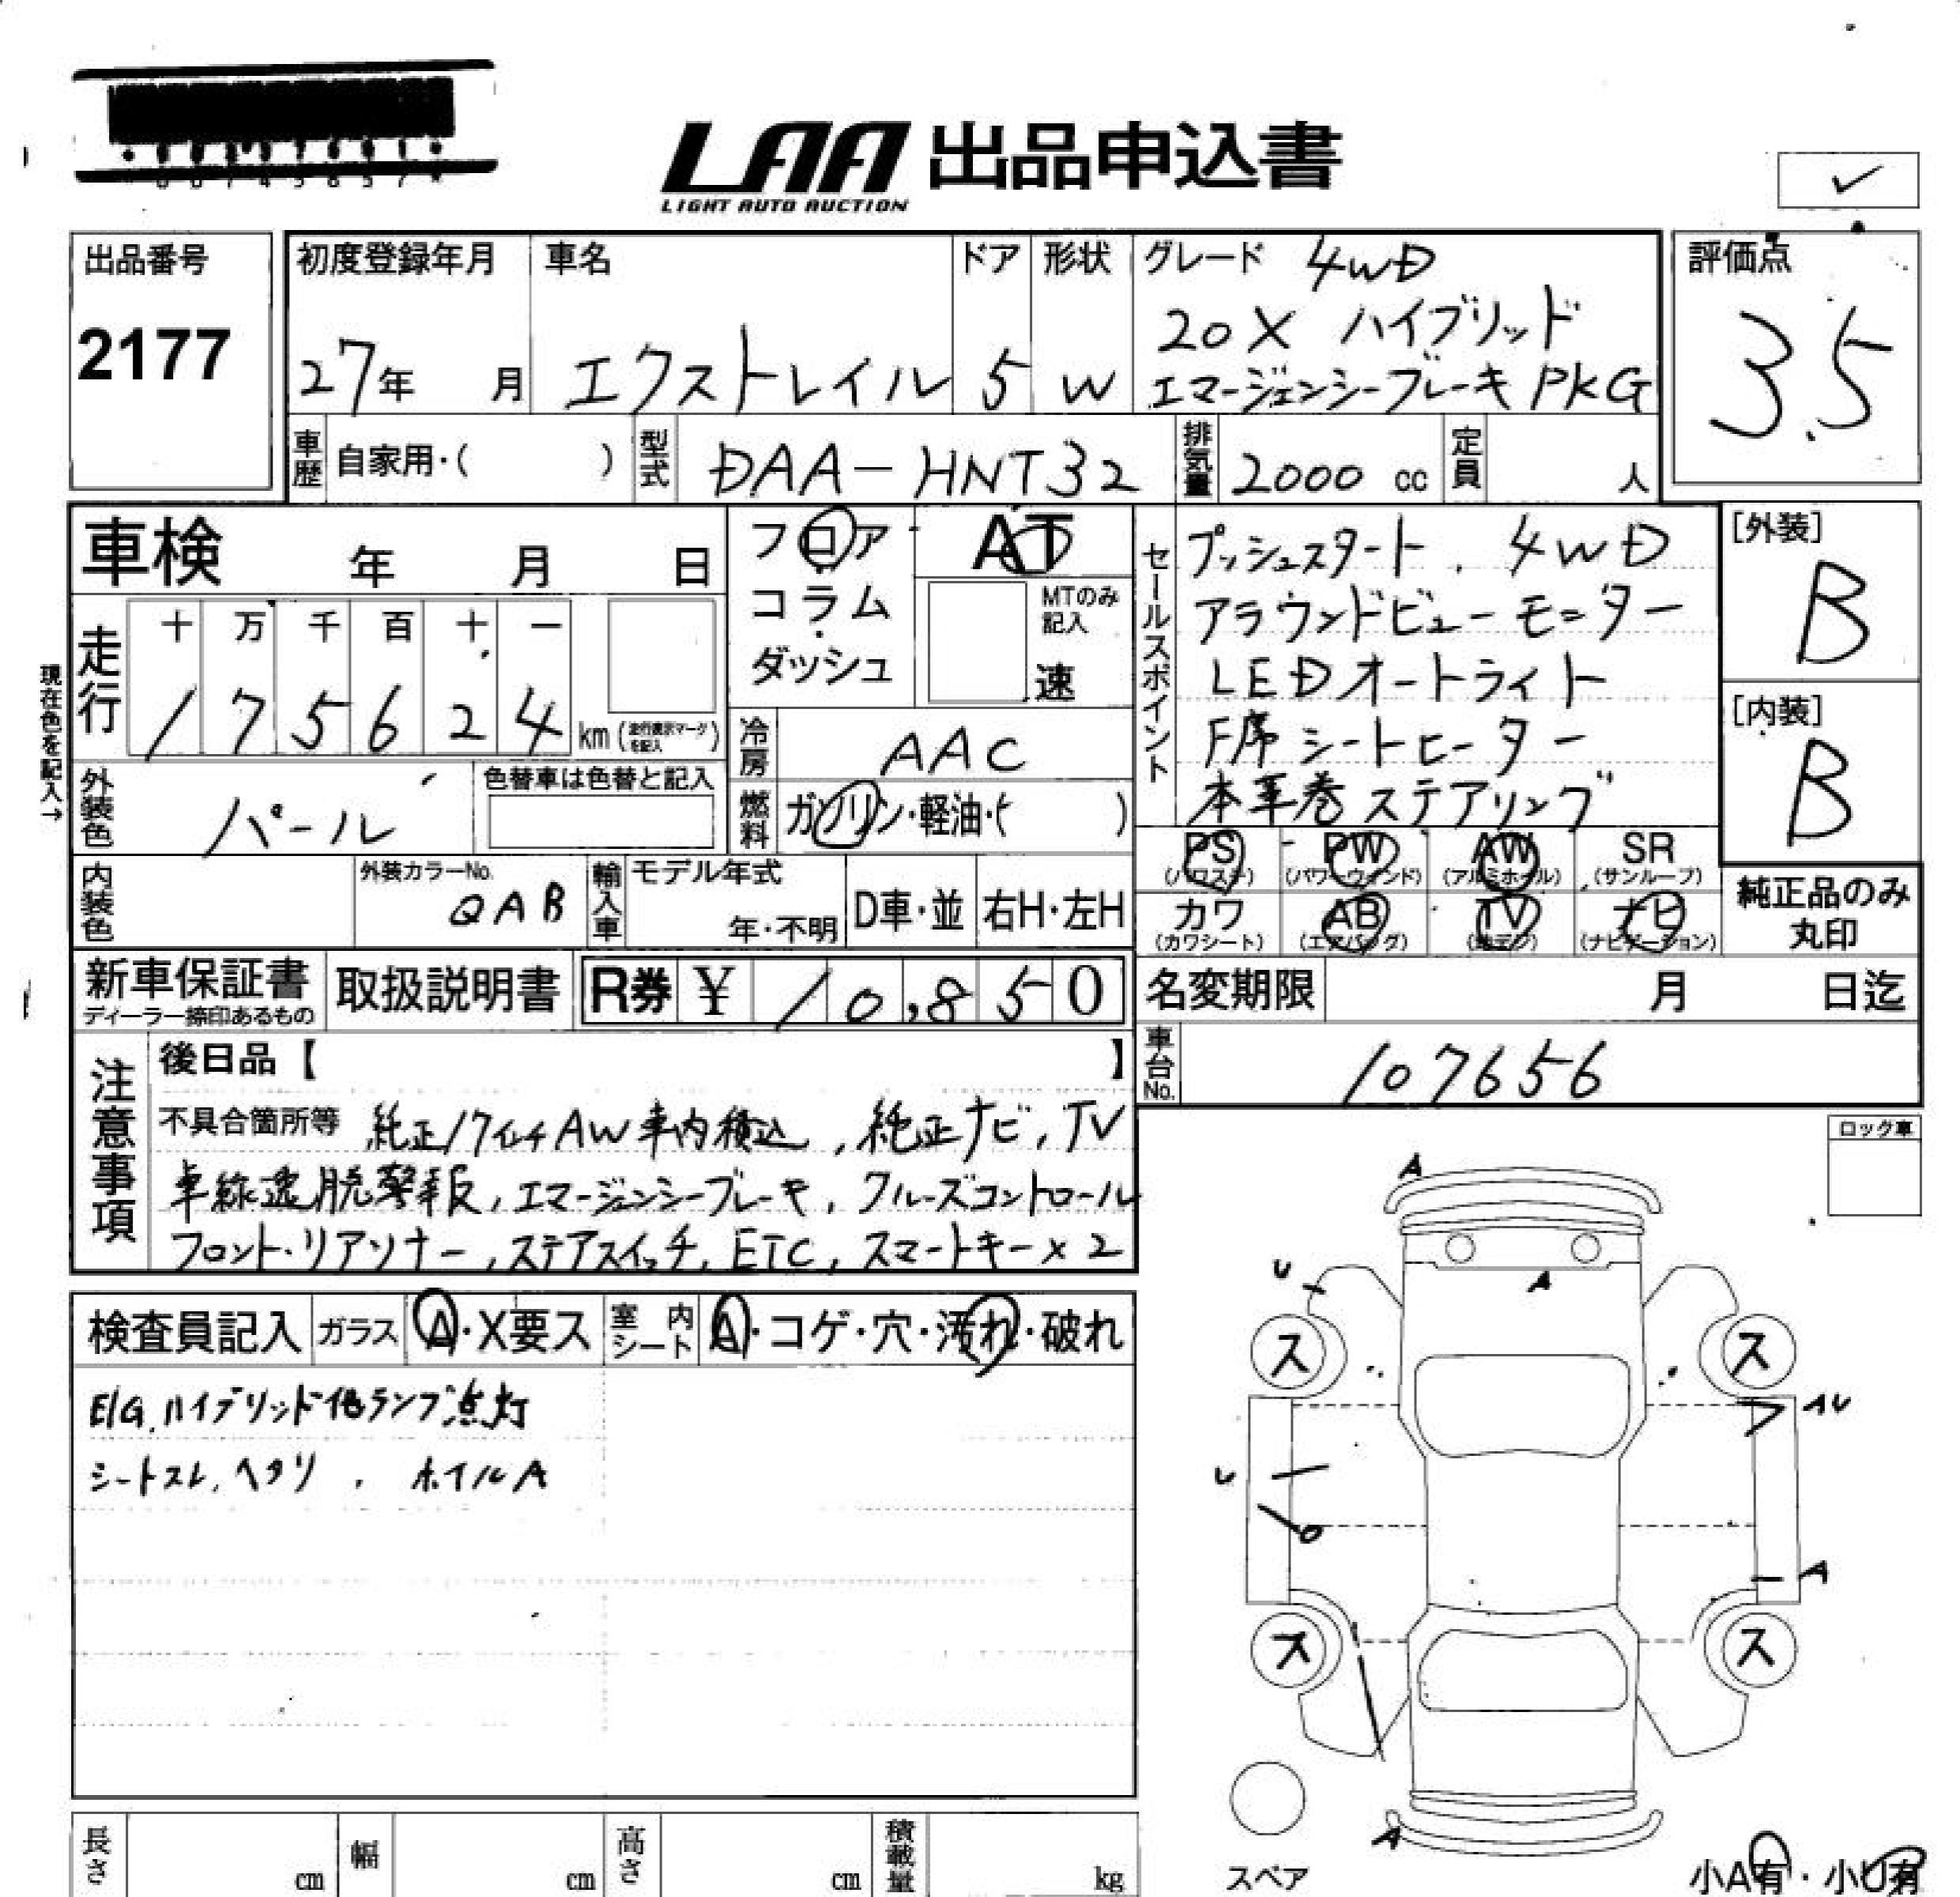 LAA 出品申込書
LIGHT AUTO AUCTION
出品番号
2177
初度登録年月
27年 月
車名
エクストレイル
ドア
5
形状
W
グレード 4WD
20X ハイブリッド
エマージェンシーブレーキPKG
評価点
3.5
車歴 自家用・( )
型式 DAA-HNT32
排気量 2000 cc
定員 人
車検 年 月 日
フロア
コラム
ダッシュ
AT
MTのみ記入
速
セールスポイント
プッシュスタート、4WD
アラウンドビューモニター
LEDオートライト
F席シートヒーター
本革巻ステアリング
[外装]
B
[内装]
B
現在色を記入→
走行
十 万 千 百 十 一
1 7 5 6 2 4 km (走行表示マークを記入)
冷房 AAC
燃料 ガソリン・軽油・( )
外装色 パール
色替車は色替と記入
内装色
外装カラーNo.
QAB
輸入車
モデル年式
年・不明
D車・並
右H・左H
PS (パワステ)
PW (パワーウィンド)
AW (アルミホイール)
SR (サンルーフ)
カワ (カワシート)
AB (エアバッグ)
TV (地デジ)
ナビ (ナビゲーション)
純正品のみ
丸印
新車保証書
ディーラー捺印あるもの
取扱説明書
R券 ¥ 10,850
名変期限 月 日迄
車台No. 107656
注意事項
後日品【 】
不具合箇所等 純正17インチAW車内積込、純正ナビ、TV
車線逸脱警報、エマージェンシーブレーキ、クルーズコントロール
フロント・リアソナー、ステアスイッチ、ETC、スマートキー×2
ロック車
検査員記入
ガラス A・X要ス
室内シート A・コゲ・穴・汚れ・破れ
E/G、ハイブリッド他ランプ点灯
シートスレ、ヘタリ、ホイルA
A
U
A
ス ス
AU
U
A
ス ス
A
スペア
小A有・小U有
長さ cm
幅 cm
高さ cm
積載量 kg